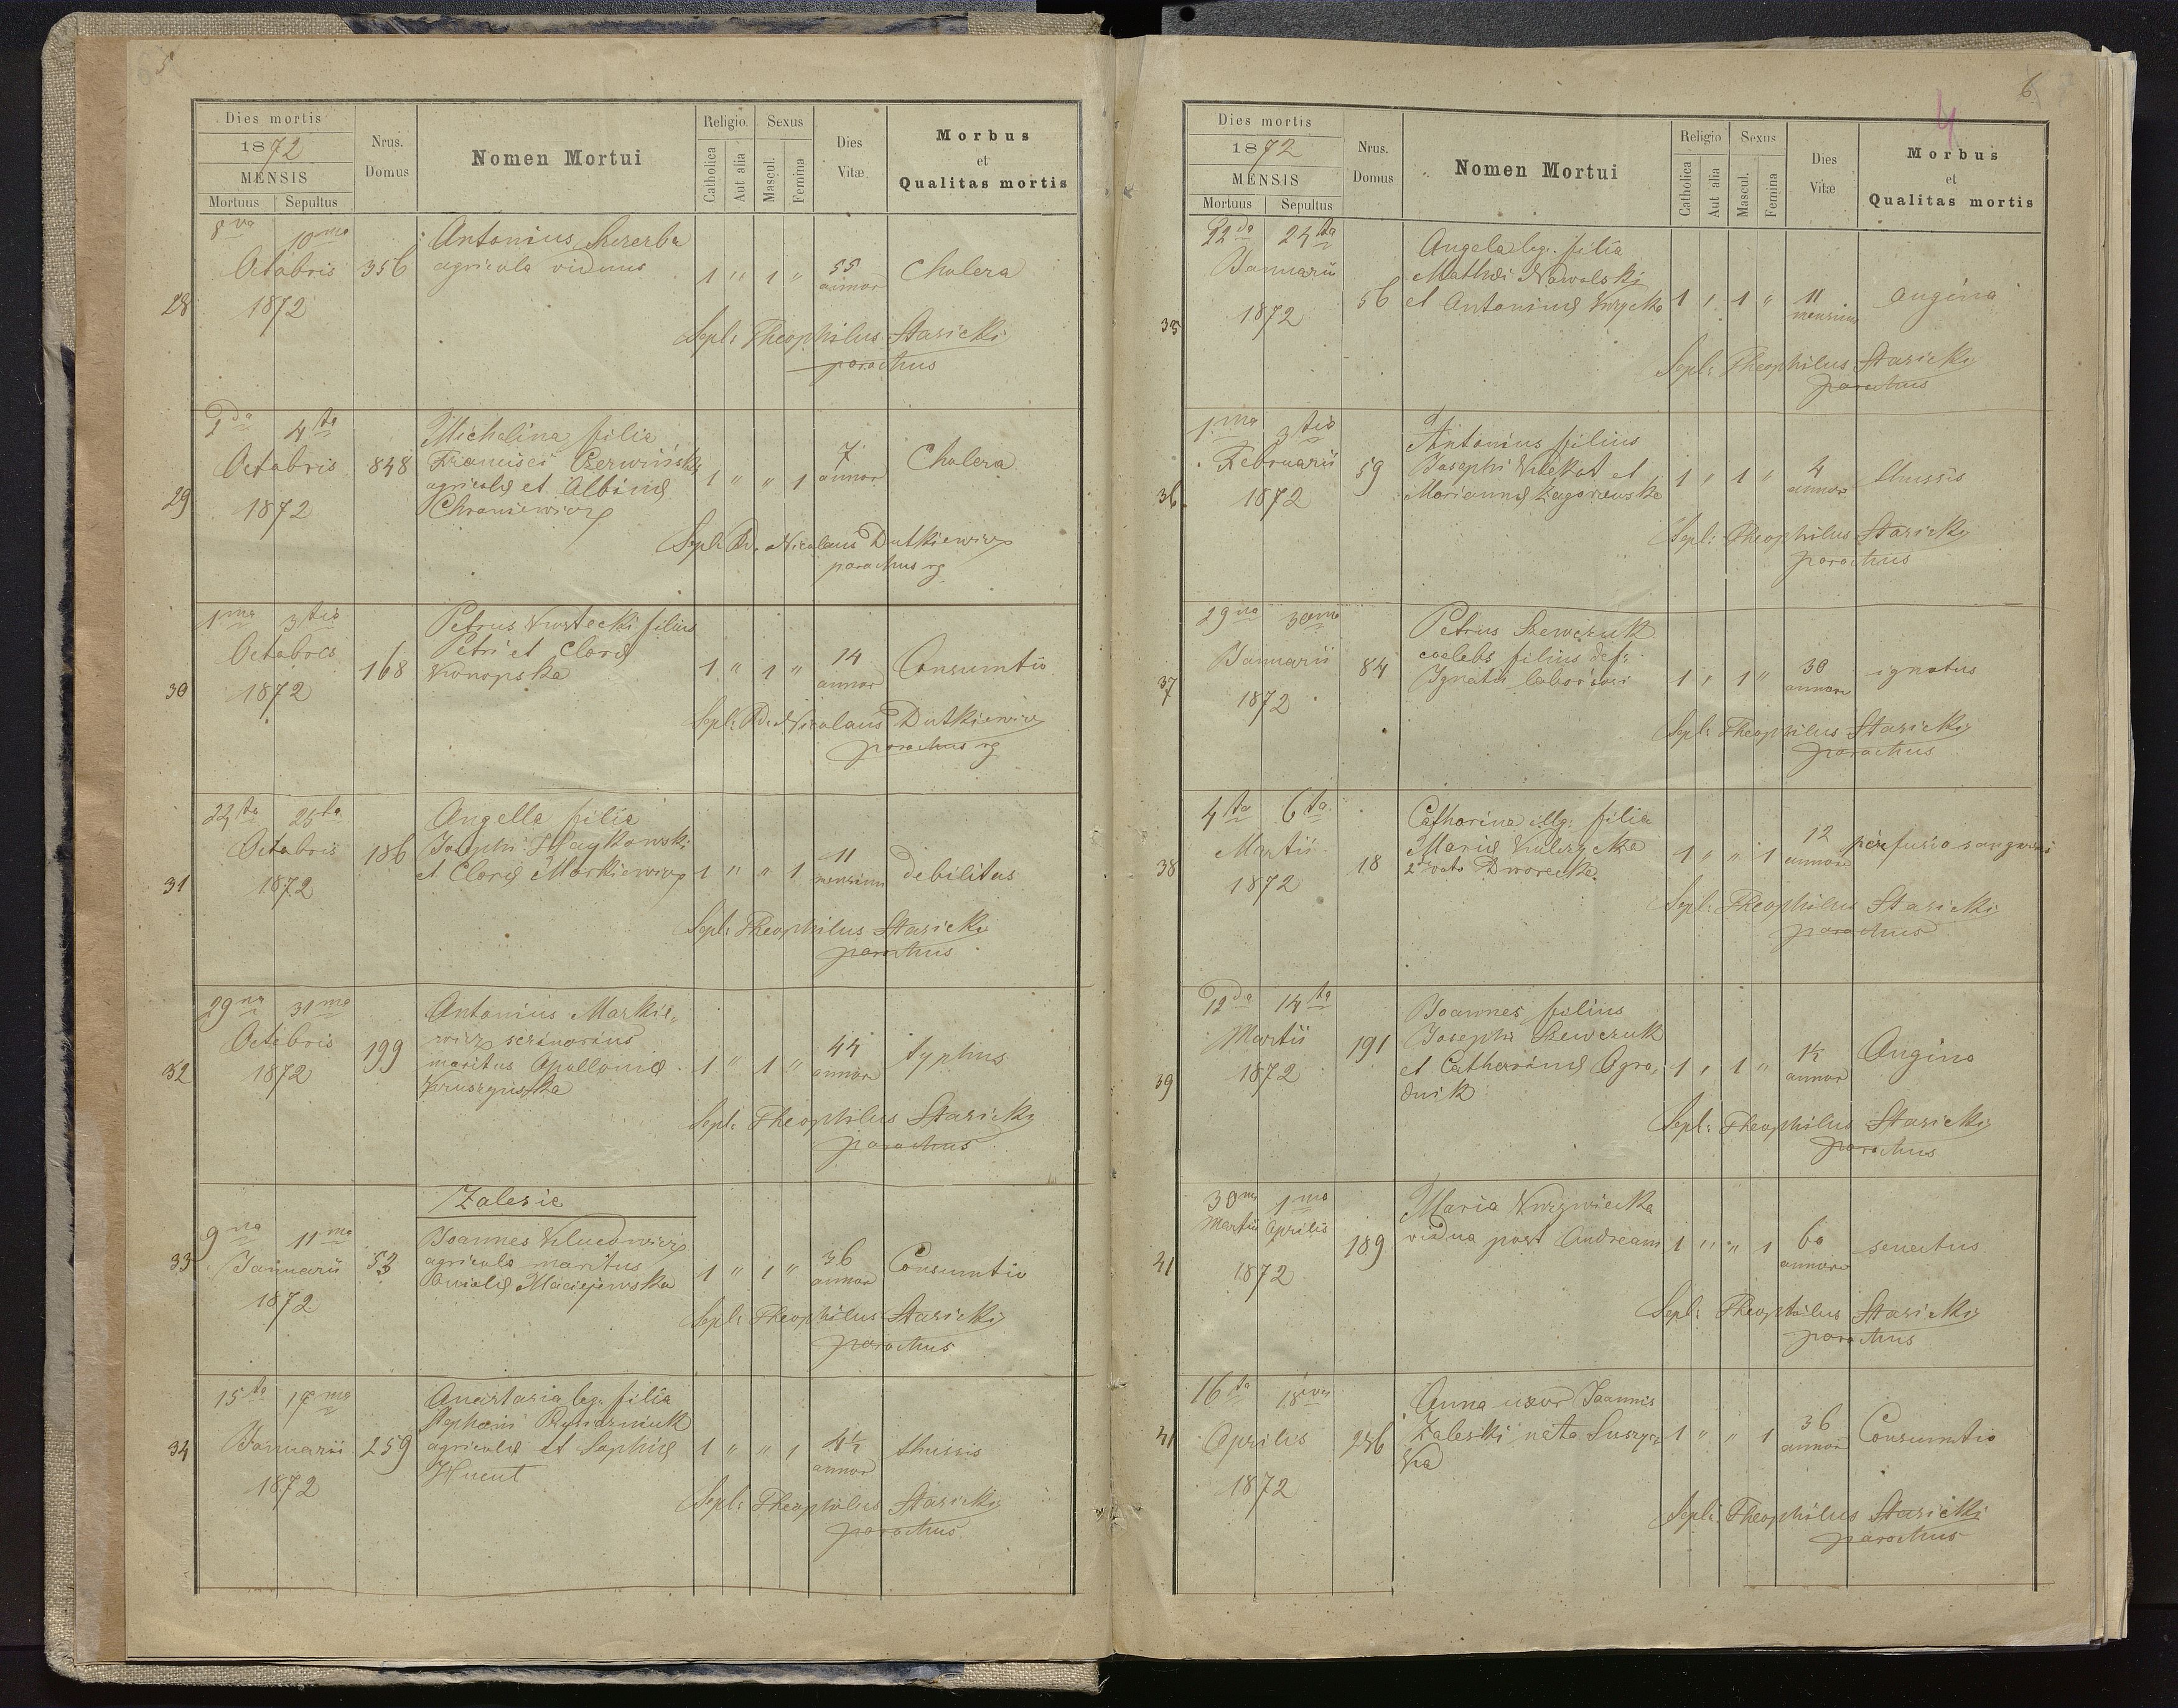 5
Dies mortis
1872
MENSIS
Mortuus Sepultus
Nrus. Domus
Nomen Mortui
Religio.
Catholica
Aut alia
Sexus
Mascul.
Femina
Dies Vitæ
Morbus
et
Qualitas mortis
28
8va 10ma
Octobris
1872
356
Antonius Szczerba
agricola viduus
1 " 1 "
55
annor
Cholera
Sepl: Theophilus Stasicki
parochus
29
2da 4ta
Octobris
1872
848
Michalina filia
Francisci Czerwiński
agricolæ et Albinæ
Chraniewicz
1 " " 1
7
annor
Cholera
Sepl: Rd. Nicolaus Dutkiewicz
parochus rg
30
1ma 3tia
Octobris
1872
168
Petrus filius
Petri et Claræ
Konopska
1 " 1 "
14
annor
Consumtio
Sepl: Rd. Nicolaus Dutkiewicz
parochus rg
31
25ta
Octobris
1872
186
Angella filia
Josephi Haykowski
et Claræ Markiewicz
1 " " 1
11
mensium
debilitas
Sepl: Theophilus Stasicki
parochus
32
29na 31ma
Octobris
1872
199
Antonius Markie„
wicz scrinarius
maritus Apolloniæ
Kruszyńska
1 " 1 "
44
annor
typhus
Sepl: Theophilus Stasicki
parochus
Zalesie
33
9na 11ma
Januarii
1872
53
Joannes Klucowicz
agricola maritus
Maciejewska
1 " 1 "
36
annor
Consumtio
Sepl: Theophilus Stasicki
parochus
34
15ta 17ma
Januarii
1872
259
Anastasia leg. filia
Stephani
agricolæ et Sophiæ
Hucut
1 " " 1
4½
annor
thussis
Sepl: Theophilus Stasicki
parochus
6.
4
Dies mortis
1872
MENSIS
Mortuus Sepultus
Nrus. Domus
Nomen Mortui
Religio
Catholica
Aut alia
Sexus
Mascul.
Femina
Dies Vitæ
Morbus
et
Qualitas mortis
35
22da 24ta
Januarii
1872
56
Angela leg. filia
Mathæi Nawolski
et Antoninæ
1 , 1 "
11
mensium
angina
Sepl: Theophilus Stasicki
parochus
36
1ma 3tia
Februarii
1872
59
Antonius filius
Josephi et
Mariannæ Zagorzewska
1 , 1 "
4
annor
thussis
Sepl: Theophilus Stasicki
parochus
37
29na 30ma
Januarii
1872
84
Petrus Szewczuk
coelebs filius def:
Ignatii
1 , 1 "
30
annor
ignotus
Sepl: Theophilus Stasicki
parochus
38
4ta 6ta
Martii
1872
18
Catharina illg: filia
Mariæ Kulczycka
2do voto Dworecka
1 " " 1
12
annor
perfusio sanguinis
Sepl: Theophilus Stasicki
parochus
39
12da 14ta
Martii
1872
191
Joannes filius
Josephi Szewczuk
et Catharinæ Ogro„
dnik
1 , 1 "
1½
annor
Angina
Sepl: Theophilus Stasicki
parochus
41
30ma 1ma
Martii Aprilis
1872
189
Maria
vidua post Andream
1 " " 1
60
annor
senectus
Sepl: Theophilus Stasicki
parochus
41
16ta 18va
Aprilis
1872
Anna uxor Joannis
Zaleski nata
1 " " 1
36
annor
Consumtio
Sepl: Theophilus Stasicki
parochus